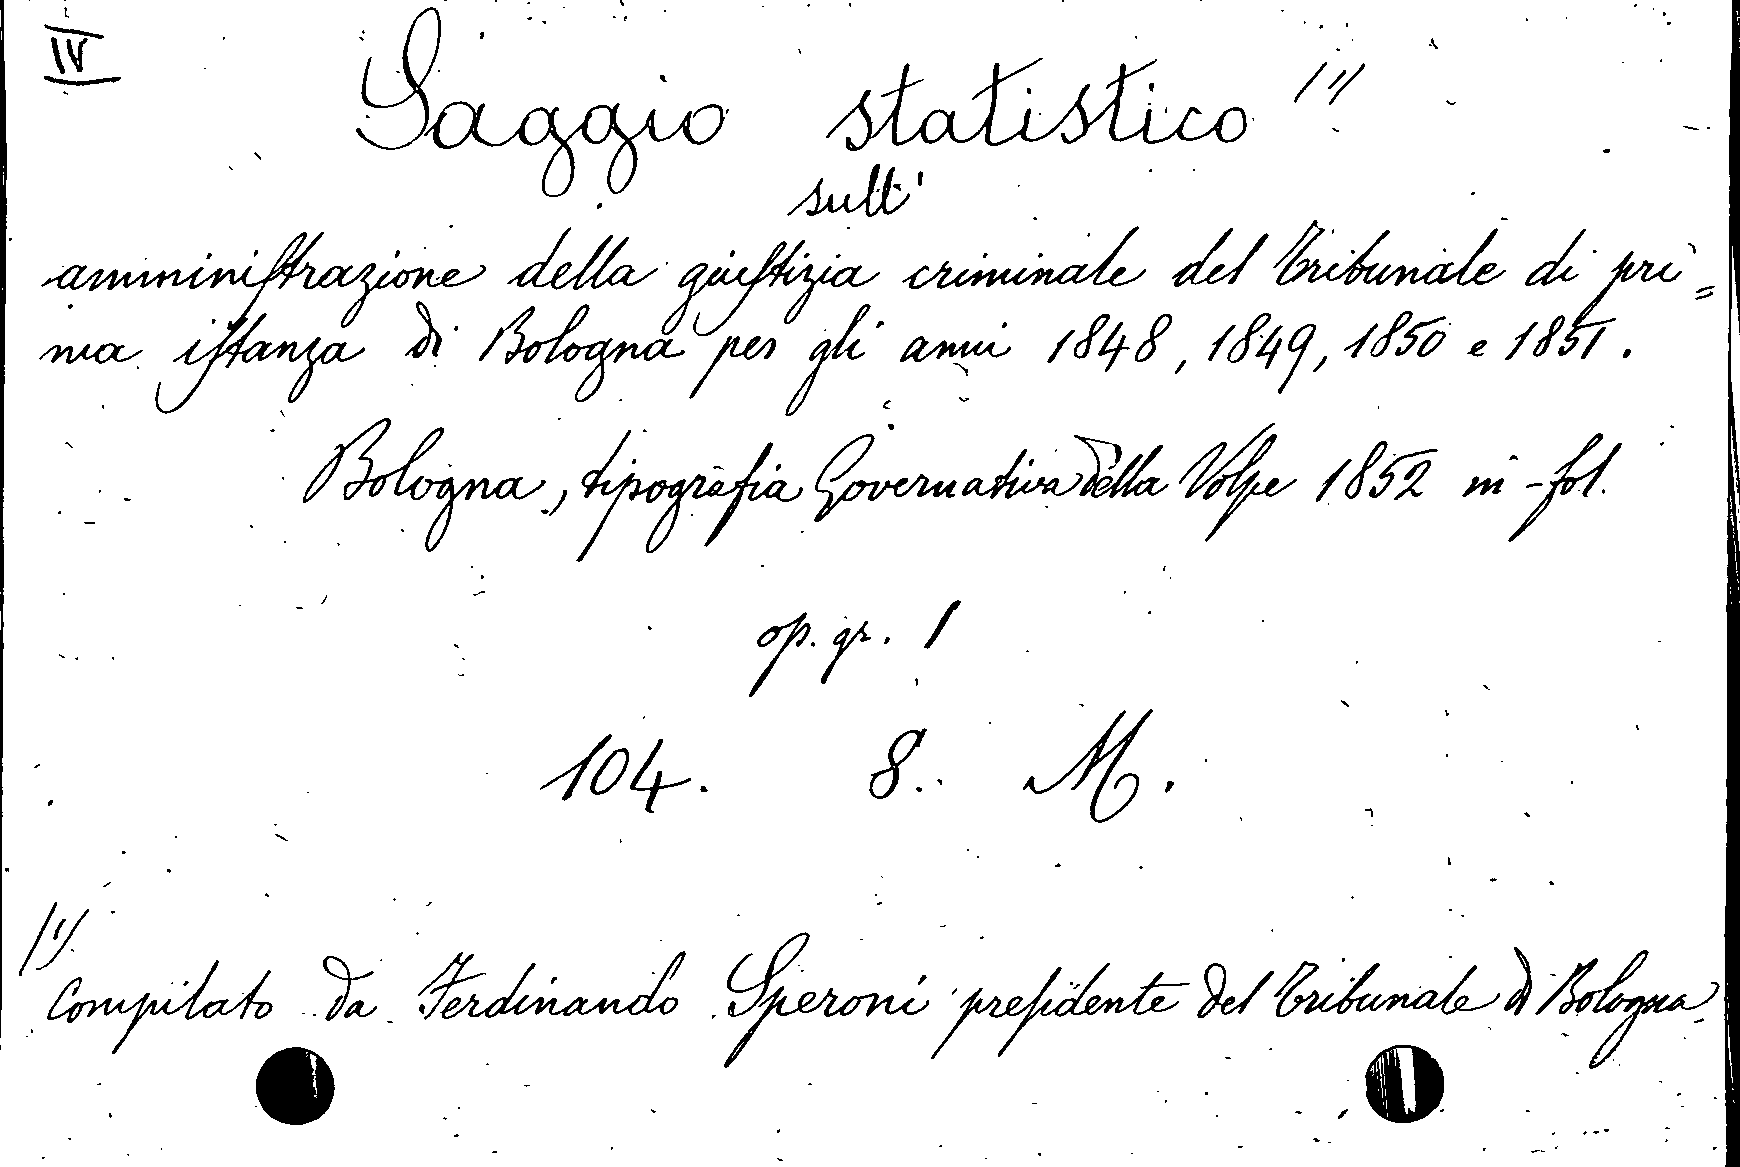 IV
Saggio statistico 1)
sull'
amministrazione della giustizia criminale del Tribunale di pri=
ma istanza di Bologna per gli anni 1848, 1849, 1850 e 1851.
Bologna, tipografia Governativa della Volpe 1852 in-fol.
op. gr. 1
104. 8. M.
1)
Compilato da Ferdinando Speroni presidente del Tribunale di Bologna